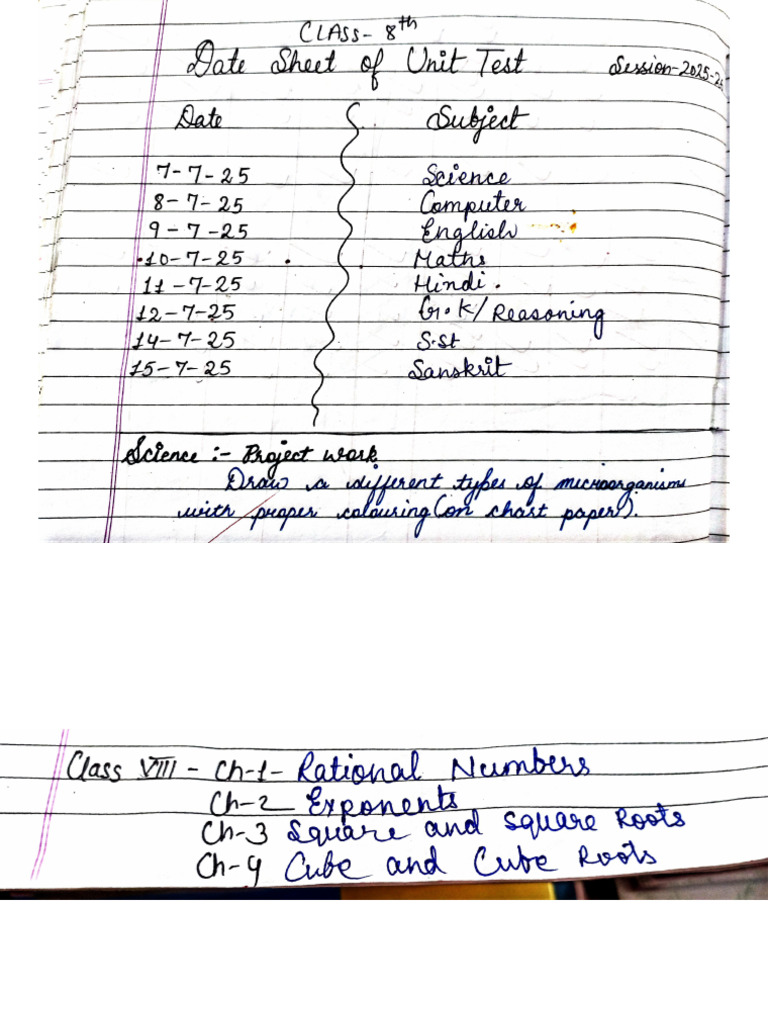 CLASS- 8th
Date Sheet of Unit Test Session-2025-26
Date Subject
7-7-25 Science
8-7-25 Computer
9-7-25 English
10-7-25 Maths
11-7-25 Hindi.
12-7-25 G.K/Reasoning
14-7-25 S.St
15-7-25 Sanskrit
Science :- Project work
Draw a different types of microorganisms
with proper colouring (on chart paper).
Class VIII - Ch-1- Rational Numbers
Ch-2 Exponents
Ch-3 Square and Square Roots
Ch-4 Cube and Cube Roots